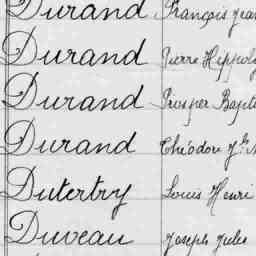 Durand François Jean
Durand Pierre Hippoly
Durand Prosper Bapti
Durand Théodore J.
Dutertry Louis Henri
Duveau Joseph Jules